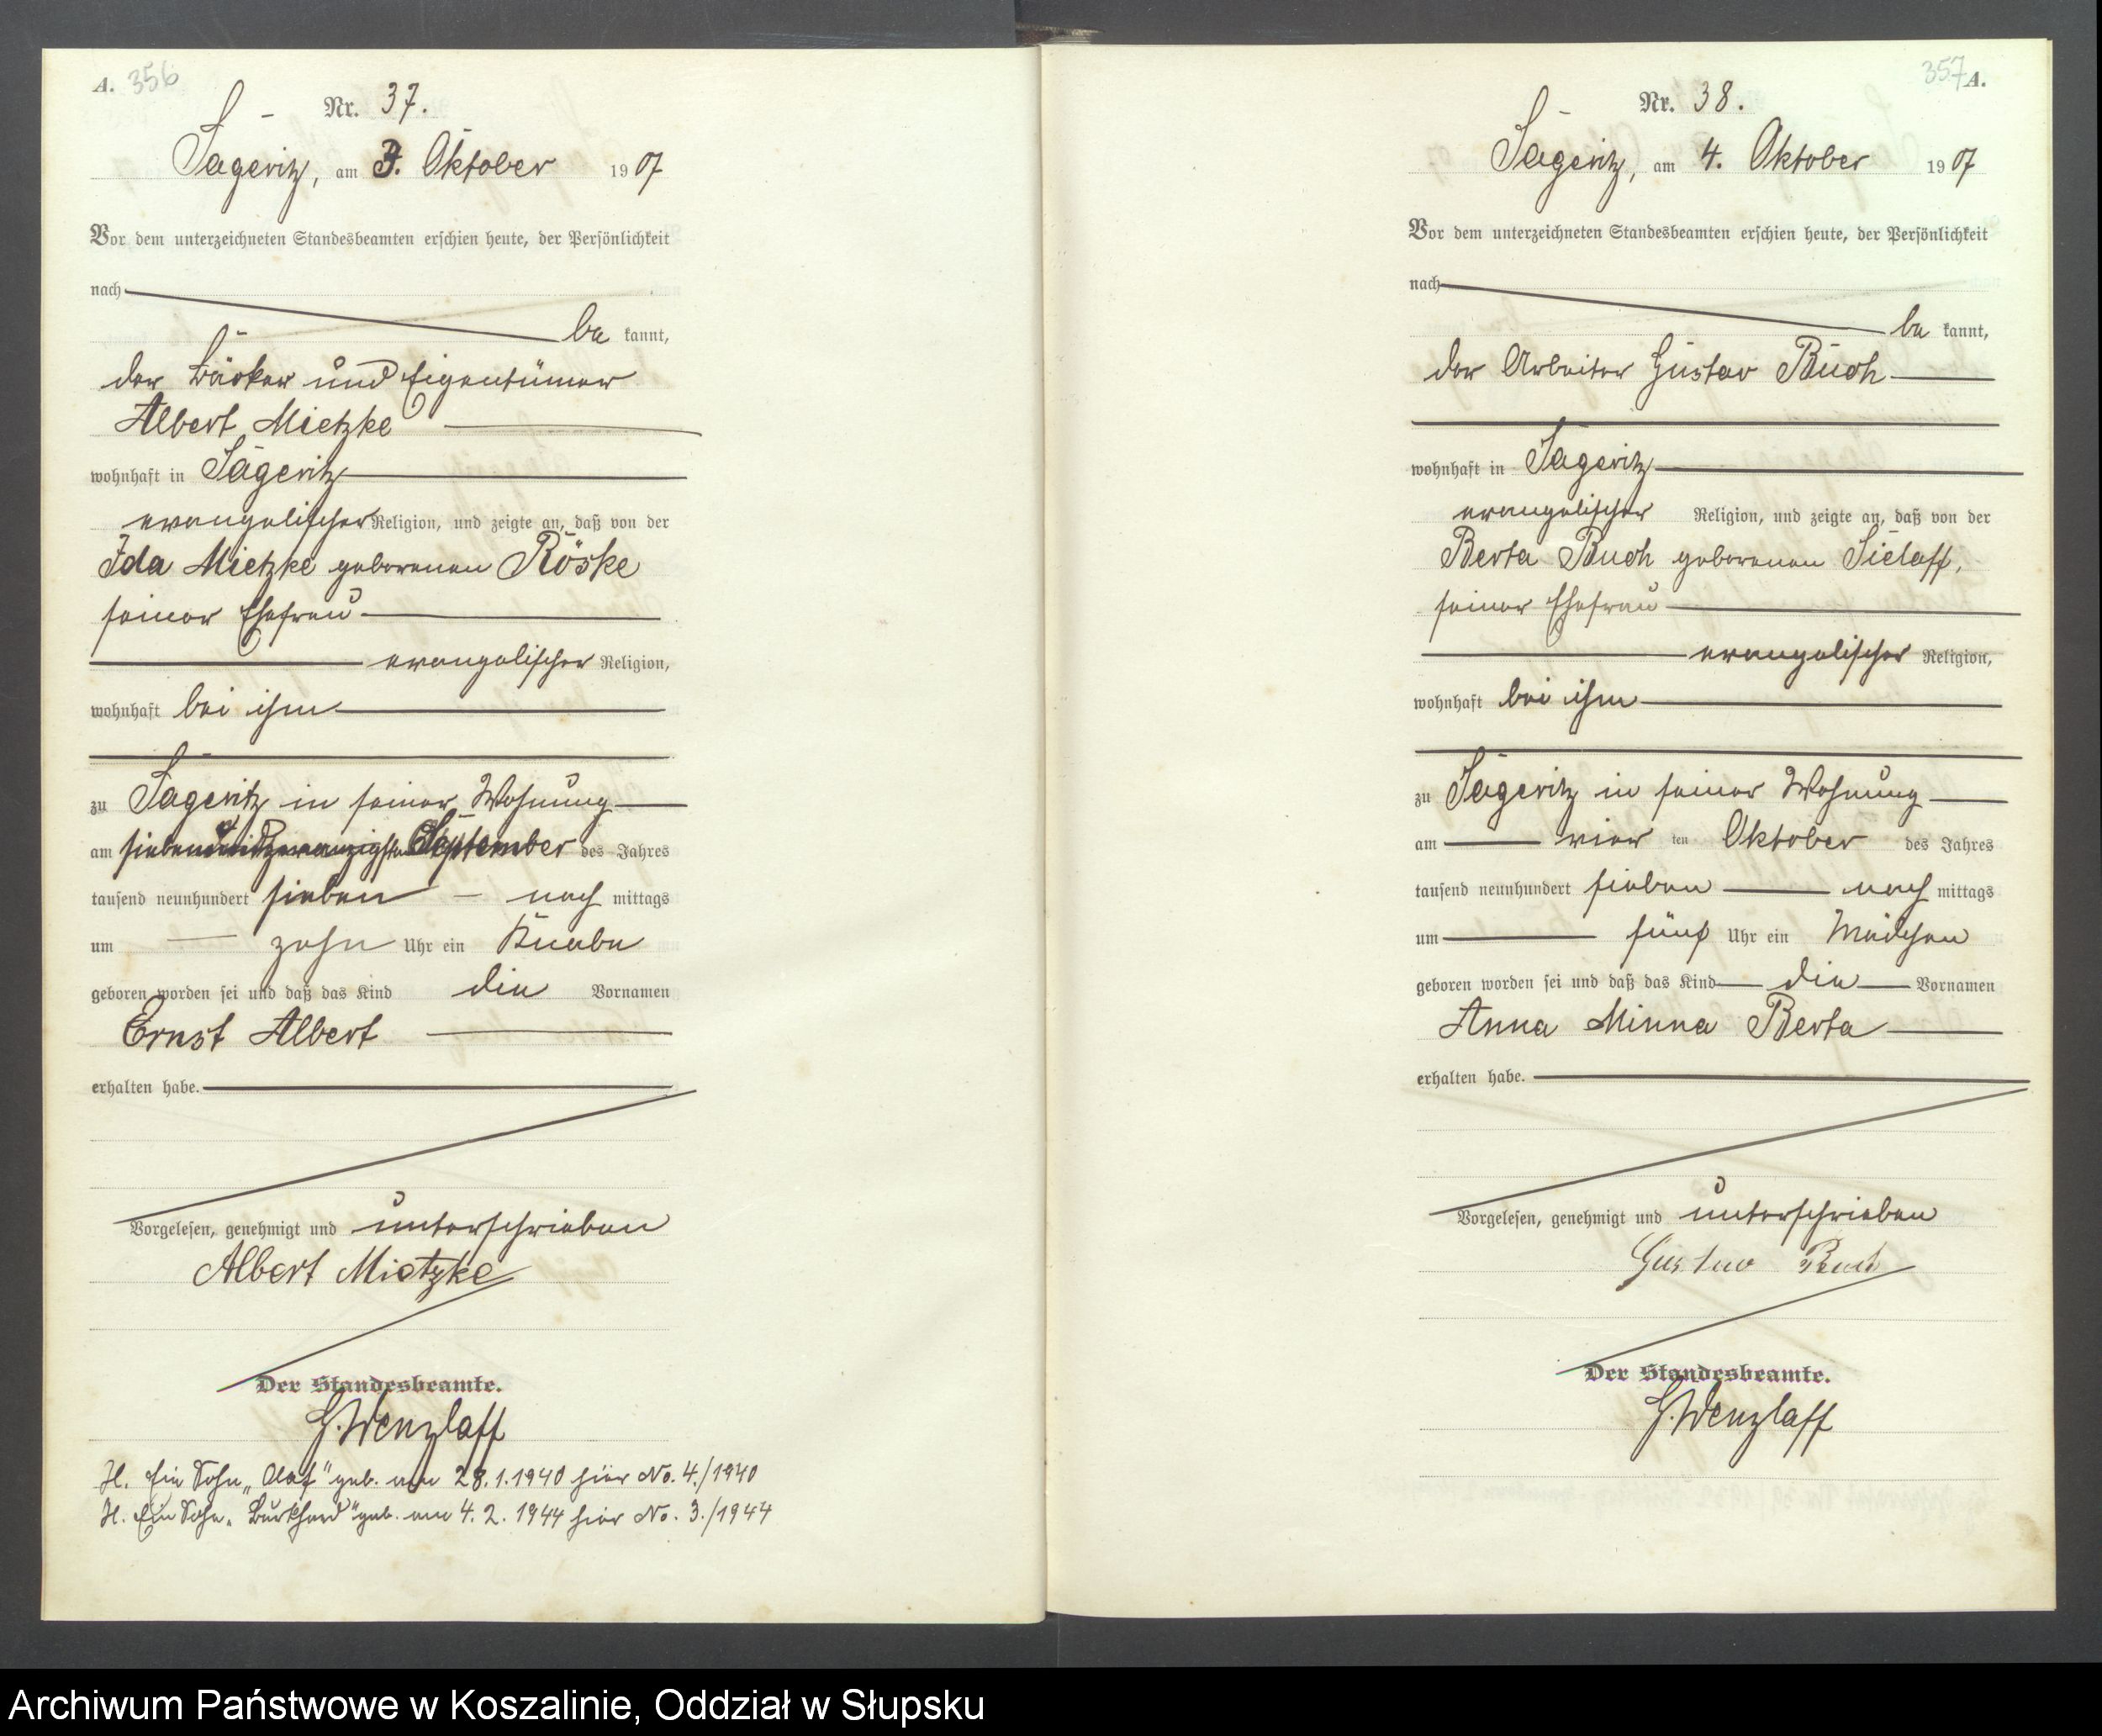 A. 356
Nr. 37.
Sageritz, am 3. Oktober 1907
Vor dem unterzeichneten Standesbeamten erschien heute, der Persönlichkeit
nach
be kannt,
der Bäcker und Eigentümer
Albert Mietzke
wohnhaft in Sageritz
evangelischer Religion, und zeigte an, daß von der
Ida Mietzke geborenen Röske
seiner Ehefrau
evangelischer Religion,
wohnhaft bei ihm
zu Sageritz in seiner Wohnung
am siebenundzwanzigsten September des Jahres
tausend neunhundert sieben nach mittags
um zehn Uhr ein Knabe
geboren worden sei und daß das Kind die Vornamen
Ernst Albert
erhalten habe.
Vorgelesen, genehmigt und unterschrieben
Albert Mietzke
Der Standesbeamte.
G. Wenzlaff
H. Ein Sohn „Olaf" geb. am 28.1.1940 hier No. 4./1940
H. Ein Sohn „Burkhard" geb. am 4.2.1944 hier No. 3./1944
357 A.
Nr. 38.
Sageritz, am 4. Oktober 1907
Vor dem unterzeichneten Standesbeamten erschien heute, der Persönlichkeit
nach
be kannt,
der Arbeiter Gustav Buch
wohnhaft in Sageritz
evangelischer Religion, und zeigte an, daß von der
Berta Buch geborenen Sielaff,
seiner Ehefrau
evangelischer Religion,
wohnhaft bei ihm
zu Sageritz in seiner Wohnung
am vier ten Oktober des Jahres
tausend neunhundert sieben nach mittags
um fünf Uhr ein Mädchen
geboren worden sei und daß das Kind die Vornamen
Anna Minna Berta
erhalten habe.
Vorgelesen, genehmigt und unterschrieben
Gustav Buch
Der Standesbeamte.
G. Wenzlaff
Archiwum Państwowe w Koszalinie, Oddział w Słupsku